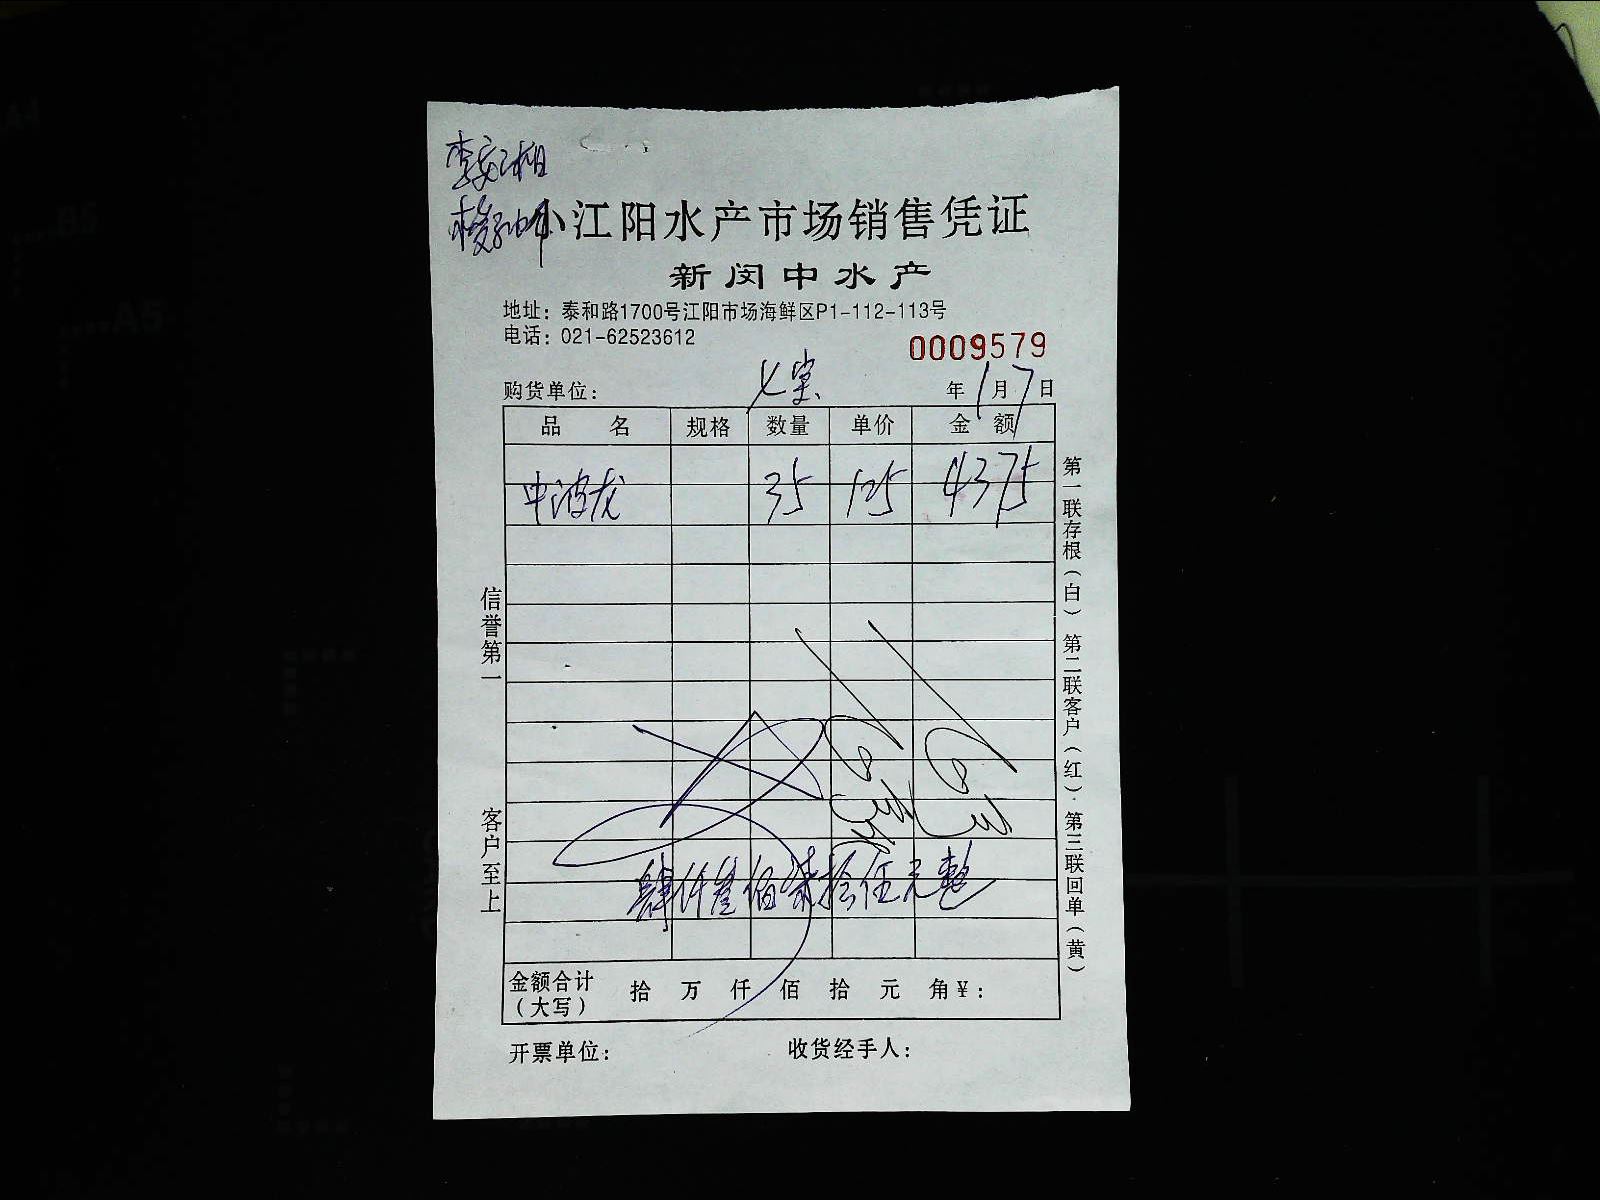 小江阳水产市场销售凭证
新闵中水产
地址：泰和路1700号江阳市场海鲜区P1-112-113号
电话：021-62523612
0009579
购货单位： 七 年1月7日
品 名 规格 数量 单价 金 额
中波龙 35 125 4375
肆仟叁佰柒拾伍元整
金额合计（大写） 拾 万 仟 佰 拾 元 角¥：
开票单位： 收货经手人：
信誉第一 客户至上
第一联存根（白） 第二联客户（红） 第三联回单（黄）